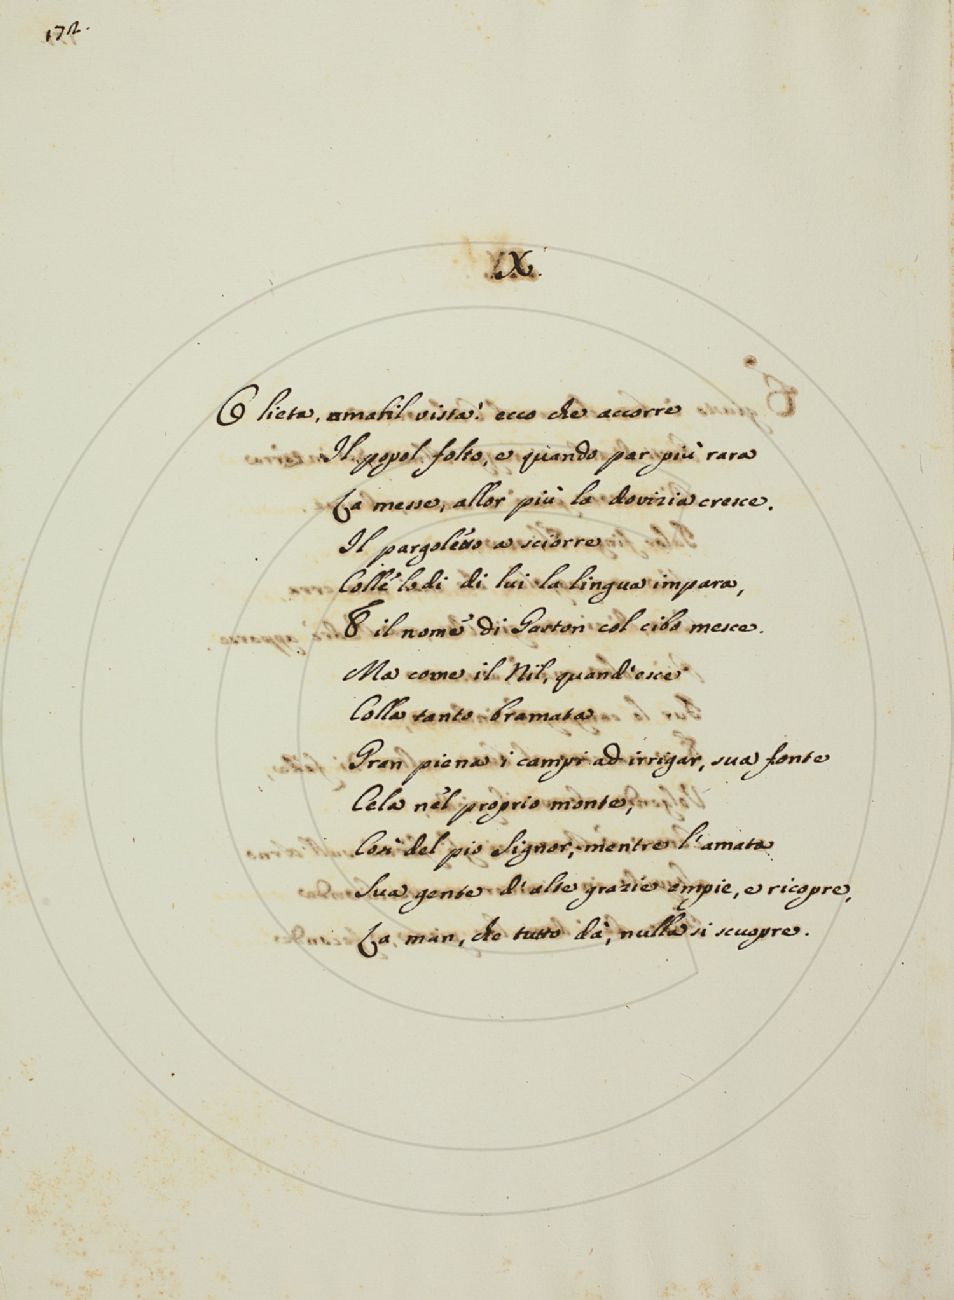 172.
IX.
O lieta, amabil vista! ecco che accorre
Il popol folto, e quando par più rara
La messe, allor più la dovizia cresce.
Il pargoletto a sciorre
Colle lodi di lui la lingua impara,
E il nome di Gaston col cibo mesce.
Ma come il Nil, quand'esce
Colla tanto bramata
Gran piena i campi ad irrigar, sua fonte
Cela nel proprio monte;
Così del pio Signor, mentre l'amata
Sua gente d'alte grazie empie, e ricopre,
La man, che tutto dà, nulla si scuopre.